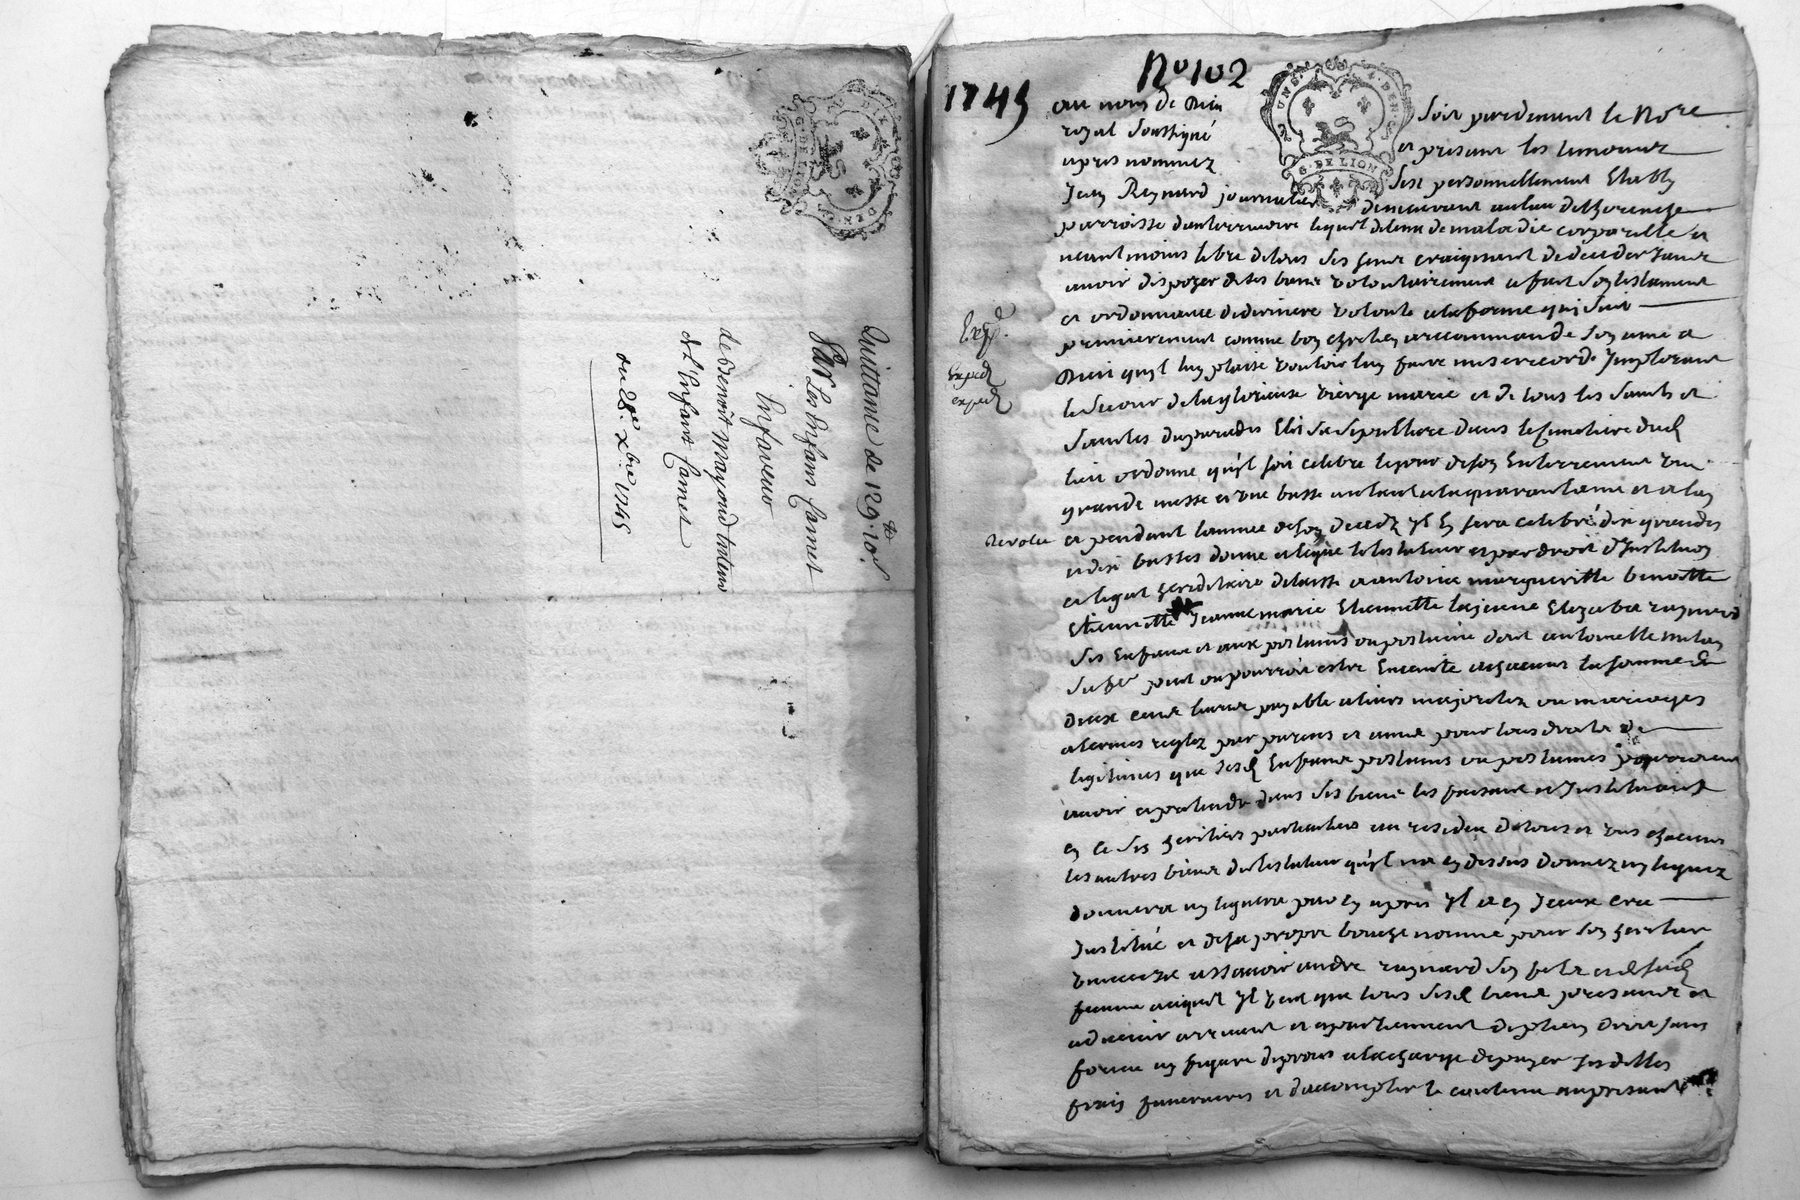 Quittance de 129.lt 10s.
Par Les Enfans Camet
Enfaveur
de Benoist Mayoud tuteur
de l'Enfant Camet
du 28e. Xbre 1745
1745
No 102
UNS. 4. DEN.
G. DE LION
au nom de Dieu soit pardevant le Nore
royal soussigné et présant les temoins
apres nommez s'est personnellement Etably
Jean Reynard journalier demeurant au lieu de
parroisse lequel detenu de maladie corporelle et
neantmoins libre de tous ses sens craignant de deceder sans
avoir disposer de ses biens volontairement a fait son testament
et ordonnance de derniere volonté a la forme qui suit
Exp.
premierement comme bon chretien a recommandé son ame a
Exped
Dieu qu'il luy plaise vouloir luy faire misericorde Implorant
exped
le secour de la glorieuse vierge marie et de tous les saints et
saintes du paradis Elit sa sepulture dans le simetiere dud
lieu ordonne qu'il soit celebré le jour de son Enterrement une
grande messe et une basse autant a la quarantaine et a la fin
et pendant l'année de son deceds yl En sera celebré dix grandes
et dix basses donne et legue le testateur et par droit d'Institution
et legat hereditaire delaisse a antoine margueritte benoitte
Etiennette Jeanne marie Etiennette la jeune Elizabet raynard
ses Enfans et aux postumes ou postume dont antoinette
sa fe. peut ou pourroit estre Enceinte a chacun la somme de
deux cent livres payable a leurs majoritez ou mariages
a termes reglez par parens et amis pour tous droits de
legitimes que sesd Enfans postumes ou postumes pourroient
avoir et pretendre dans ses biens les faisant et Instituant
en ce ses heritiers particuliers au residu de tous et uns chacuns
les autres biens du testateur qu'yl n'a cy dessus donnez ny leguez
donnera ny leguera par cy apres yl a en Iceux cree
Institué et de sa propre bouche nommé pour son heritier
universel assavoir andré raynard son fils et de sad
femme auquel yl veut que tous sesd biens presents et
advenir arrivent et apartiennent de plein droit sans
forme ny figure de proces a la charge de payer sesdittes
frais funeraires et d'accomplir le contenu au present